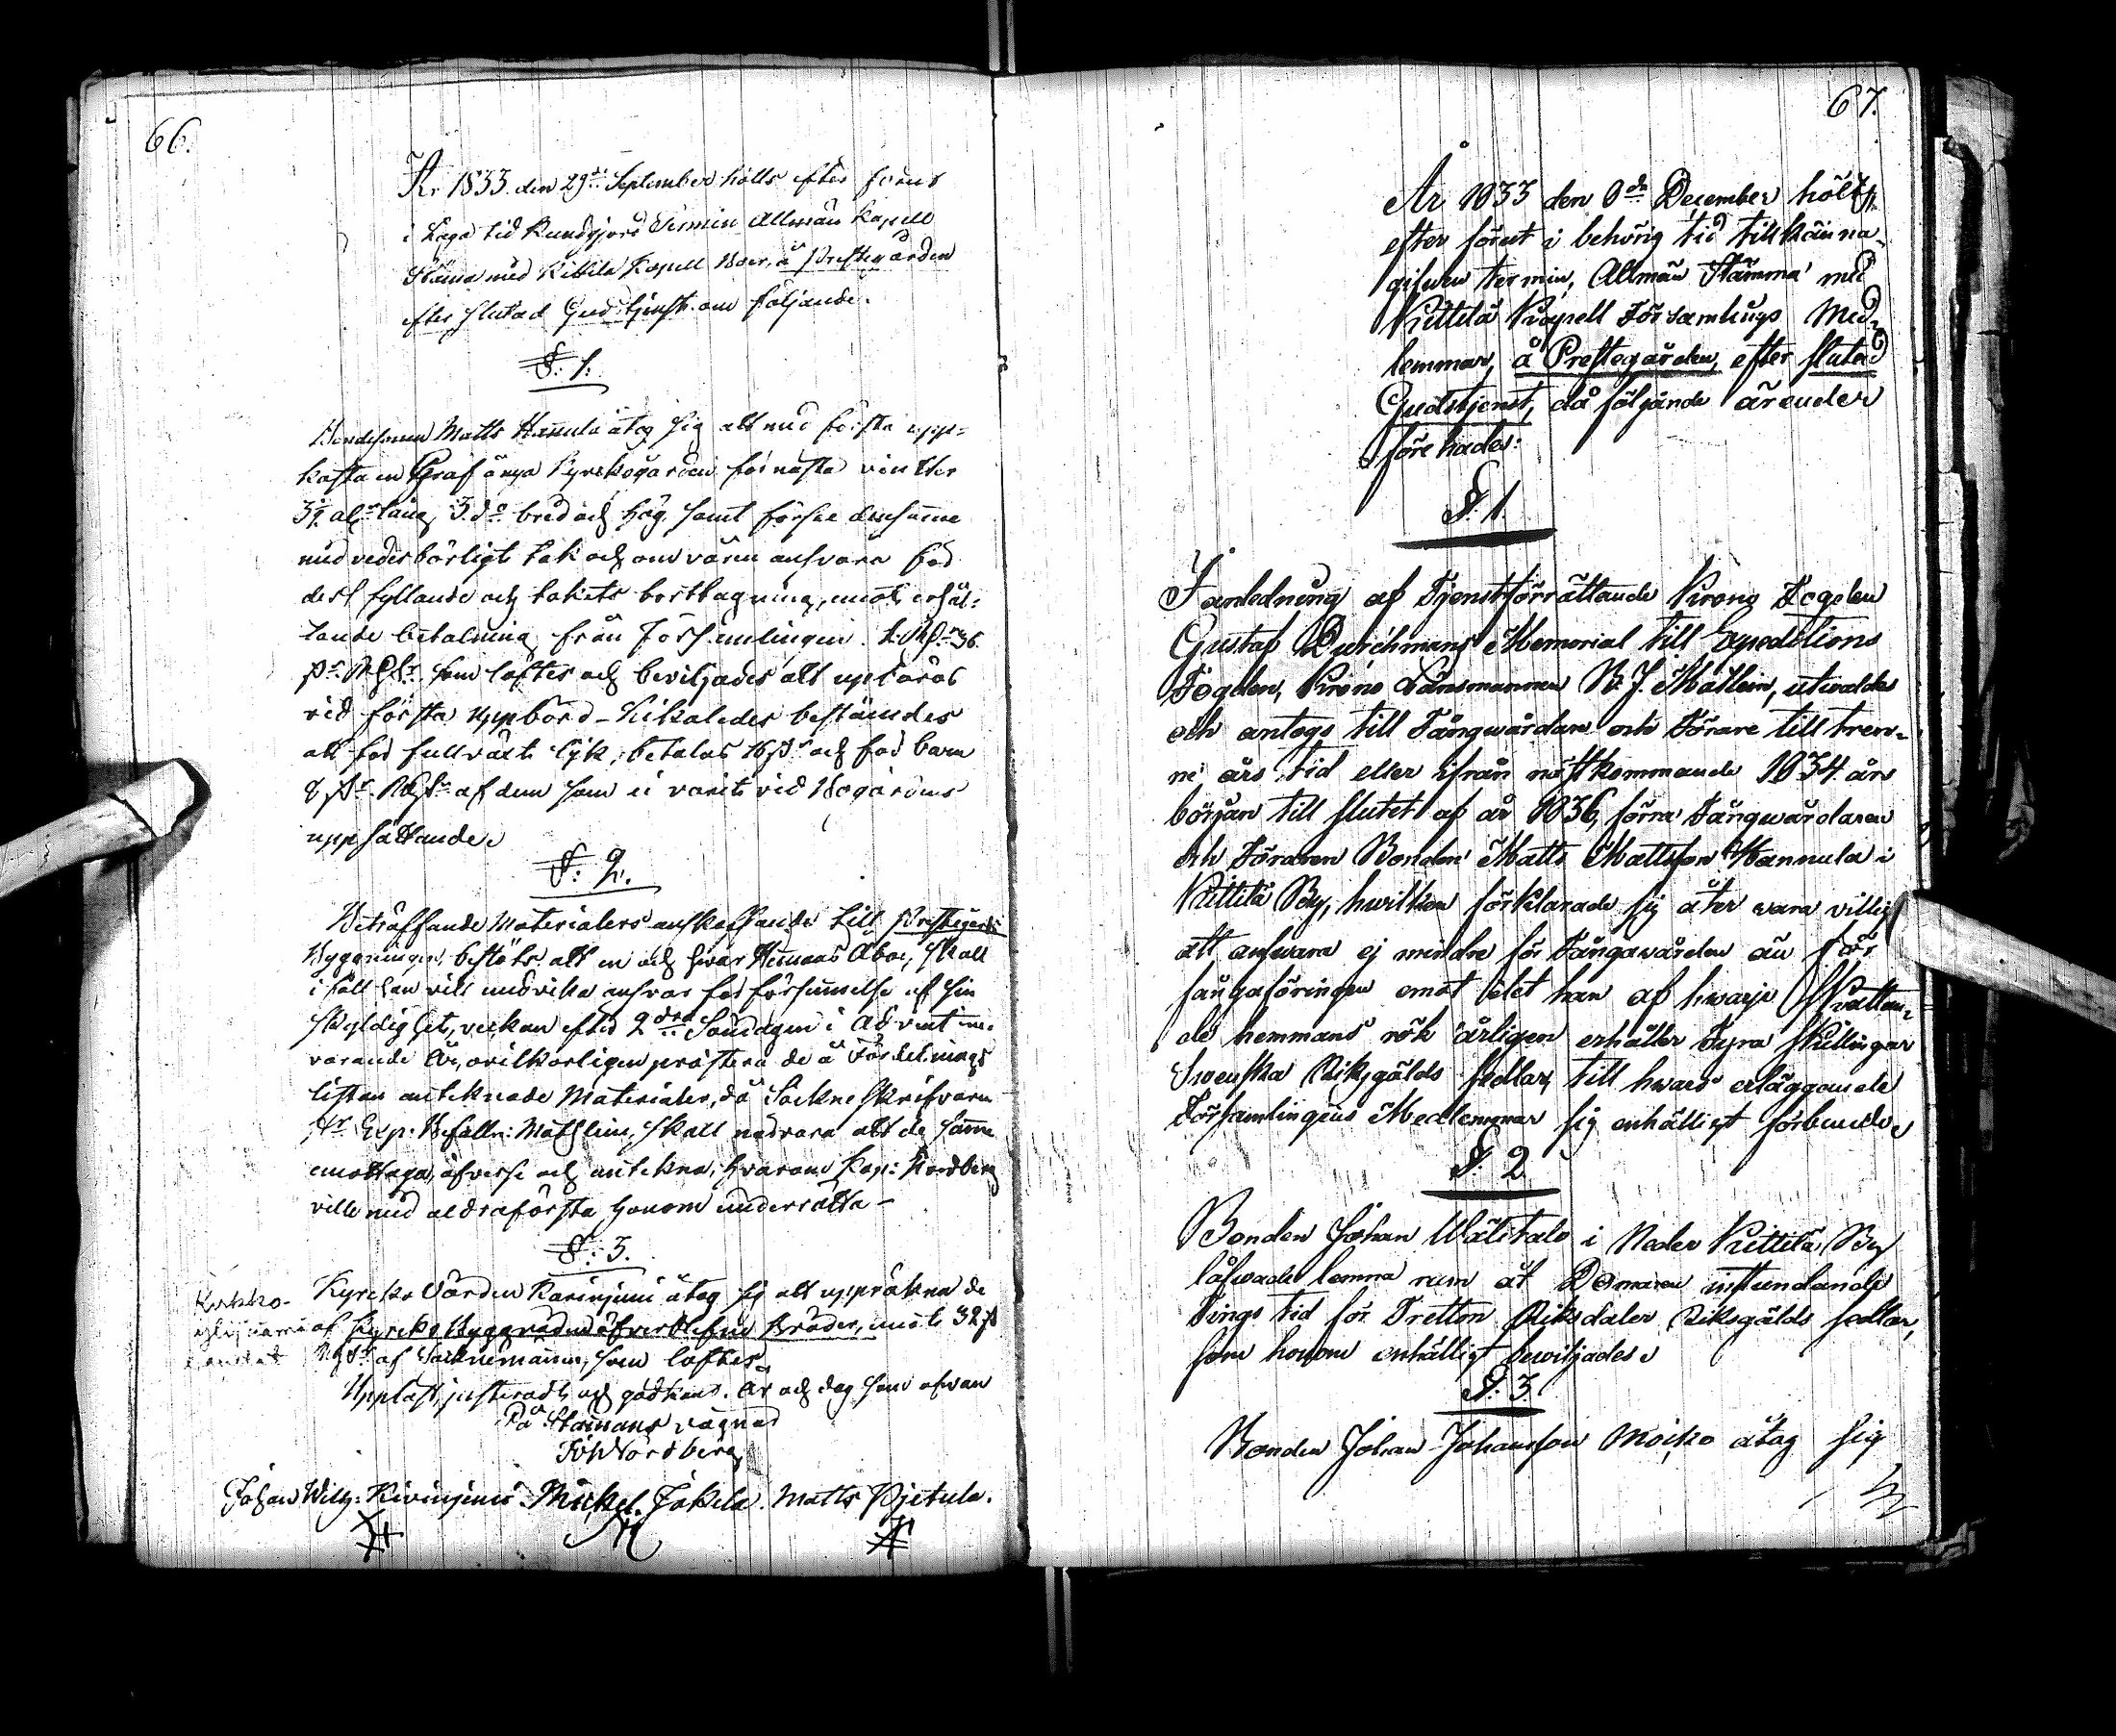 66.
År 1833. den 29de September hölls efter förut
i Laga tid kundgjord Termin Allmän Kapell
Stäma med Kittila Kapell Boer, å Prestegården
efter slutad Gudstjenst om följande.
§: 1:
Bondesonen Matts Hannula åtog sig att med första upp-
kasta en Graf å nya Kyrckogården för nästa vinter
aln lång, 3. do bred och hög, samt förse densamme
med vederbörligt tak och om våren ansvara för
dess fyllande och takets borttagning, emot erhål-
lande betalning från Församlingen
som löftes och beviljades att uppbäras
vid första Uppbörd - Likaledes bestämdes
att för fullväxt lijk, betalas 16 och för barn
8 af dem som ei varit vid Bogårdens
uppsättande
§: 2.
Beträffande Materialiers anskaffande till Prestegårds
Byggningen, beslöts att en och hvar Hemans Åboe, skall
i fall han vill undvika ansvar för försummelse af sin
skyldighet, veckan efter 2dra Söndagen i Advent in-
varande År, ovilkorligen præstera de å Fördelnings
listan antecknade Materialier, då Sockne Skrifvaren
Hr Exp: Befalln: Mathlein, skall närvara att de samma
emottaga, afverse och antekna, hvarom Kap: Nordberg
ville med aldraförsta honom underrätta -
§: 3.
Kyrcko Värden Kivinjemi åtog sig att uppräkna de
af Kyrcko Byggnaden öfverblefne Bräder, emot 32
af Socknemännen, som löftes.
Uppläst, justeradt och godkänd. År och dag som ofvan
På Stämans vägnar
Nordberg
Johan Wilh: Kivinjemi Mickel Jakila. Matts Pjetula.
67.
År 1833 den 8de December hölts
efter förut i behörig tid tillkänna-
gifwen termin, Allmän Stämma med
Kittilä Kapell Församlings Med-
lemmar, å Prestegården, efter slutad
Gudstjenst, då följande ärender
förehades:
§. 1.
I anledning af Tjenstförrättande Krono Fogden
Gustaf Durchmans Memorial till Expeditions
Fogden, Krono Länsmannen N. J. Mathlein, utwaldes
och antogs till Fångwårdare och Förare till tren-
ne års tid eller ifrån nästkommande 1834 års
början till slutet af år 1836, förra Fångwårdaren
och Föraren Bonden Matts Mattsson Hannula i
Kittilä By, hwilken förklarade sig åter wara villig
att answara ej mindre för Fångwården än för
fångföringen emot det han af hwarje Skattan-
de hemmans rök årligen erhåller Fyra Skillingar
Swenska Riksgälds sedlar, till hwars erläggande
Församlingens Medlemmar sig enhälligt förbundo.
§. 2
Bonden Johan Wälitalo i Neder Kittilä By
låfwade lemna rum åt Domaren instundande
Tings tid för Tretton Riksdaler Riksgälds sedlar,
som honom enhälligt bewiljades.
§. 3
Bonden Johan Johansson Moiko åtog sig